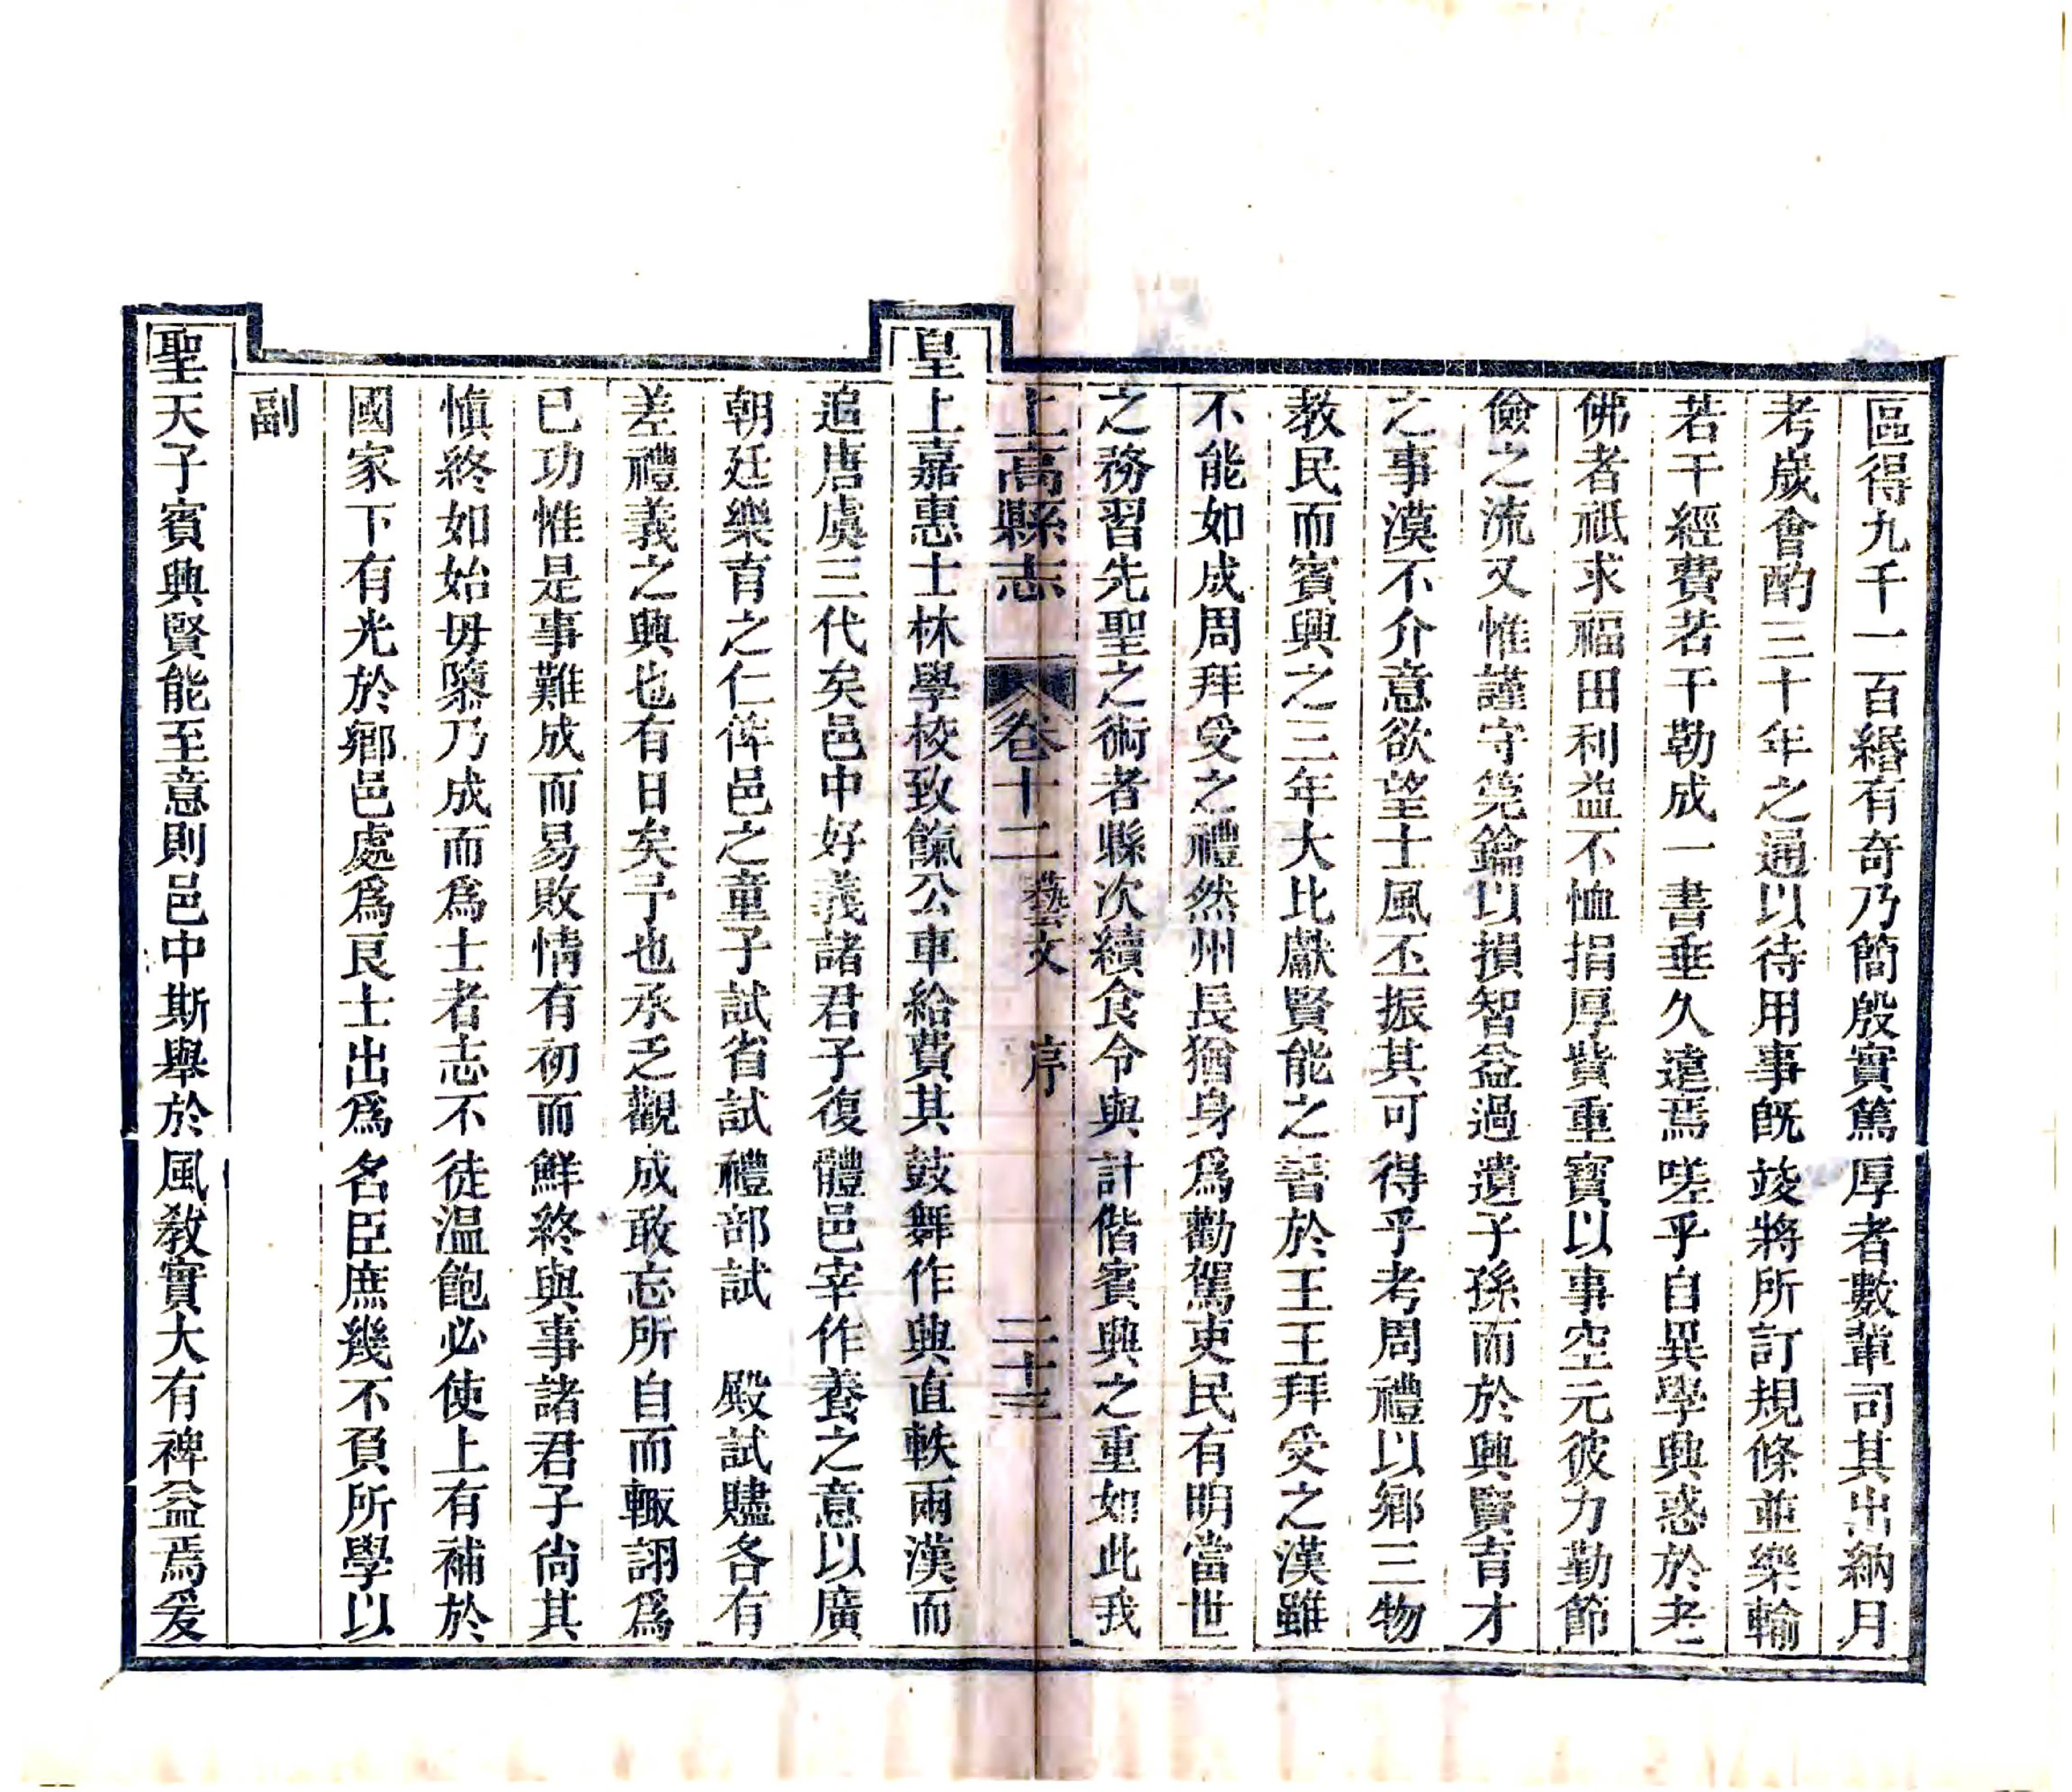 區得九千一百緡有奇乃簡殷實篤厚者數輩司其出納月
考歲會酌三十年之通以待用事旣竣將所訂規條並樂輸
若干經費若干勒成一書垂久遠焉嗟乎自異學興惑於老
佛者祇求福田利益不恤捐厚貲重寳以事空元彼力勤節
儉之流又惟謹守筦鑰以損智益過遺子孫而於興賢育才
之事漠不介意欲望士風丕振其可得乎考周禮以鄉三物
教民而賓興之三年大比獻賢能之書於王王拜受之漢雖
不能如成周拜受之禮然州長猶身爲勸駕吏民有明當世
之務習先聖之術者縣次續食令與計偕賓興之重如此我
上高縣志 卷十二 藝文 序 二十三
皇上嘉惠士林學校致餼公車給費其鼓舞作興直軼兩漢而
追唐虞三代矣邑中好義諸君子復體邑宰作養之意以廣
朝廷樂育之仁俾邑之童子試省試禮部試 殿試贐各有
差禮義之興也有日矣予也承乏觀成敢忘所自而輒詡爲
已功惟是事難成而易敗情有初而鮮終與事諸君子尚其
慎終如始毋隳乃成而爲士者志不徒温飽必使上有補於
國家下有光於鄉邑處爲良士出爲名臣庶幾不負所學以
副
聖天子賓興賢能至意則邑中斯舉於風教實大有裨益焉爰